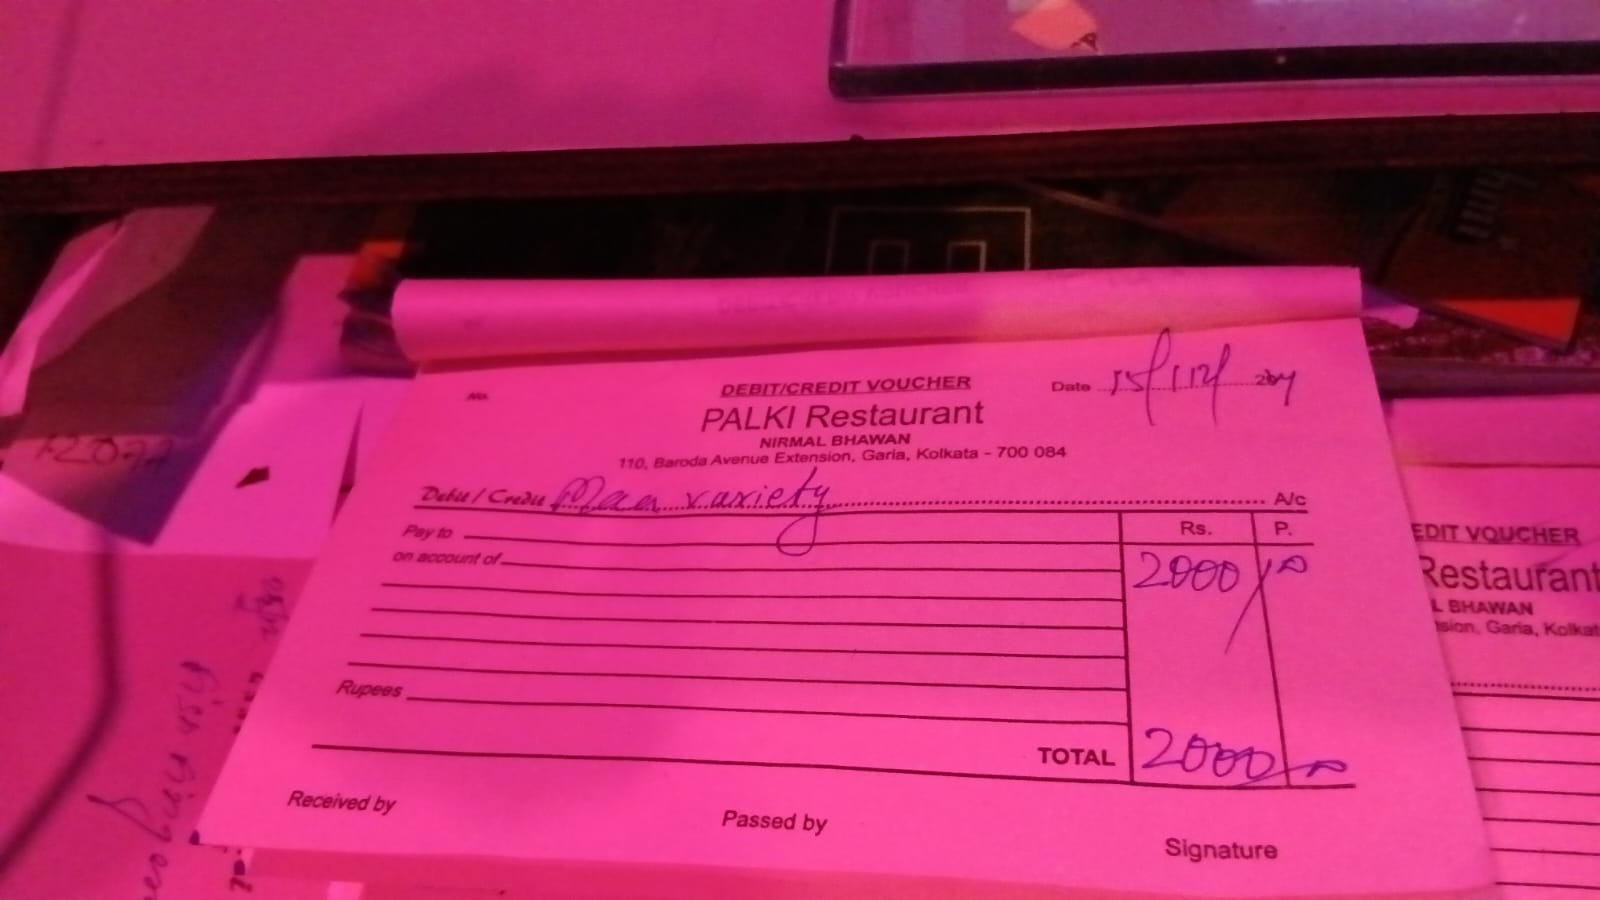 No.
DEBIT/CREDIT VOUCHER
Date 15/12/ 24
PALKI Restaurant
NIRMAL BHAWAN
110, Baroda Avenue Extension, Garia, Kolkata - 700 084
Debit / Credit variety A/c
Pay to Rs. P.
on account of 2000/-
Rupees
TOTAL 2000/-
Received by Passed by Signature
EDIT VOUCHER
Restaurant
L BHAWAN
nsion, Garia, Kolkat